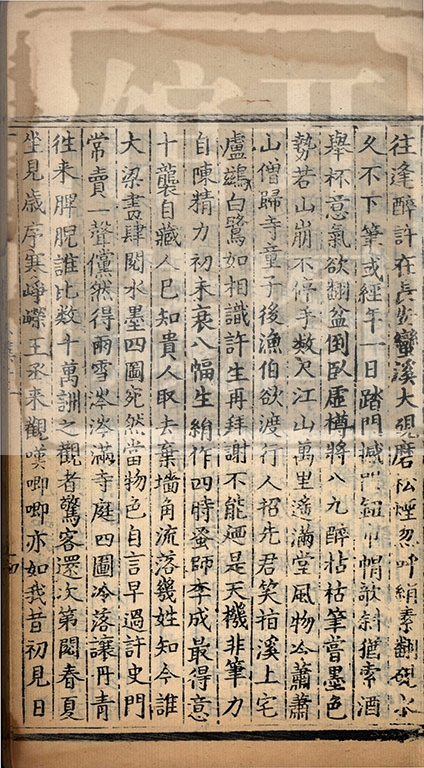 往逢醉許在長安蠻溪大硯磨松煙忽呼絹素翻硯水
久不下筆或經年一日踏門撼門鈕巾帽欹斜猶索酒
舉杯意氣欲翻盆倒臥虛樽將八九醉拈枯筆嘗墨色
勢若山崩不停手數尺江山萬里遙滿堂風物冷蕭蕭
山僧歸寺童子後漁伯欲渡行人招先君笑指溪上宅
盧鶿白鷺如相識許生再拜謝不能是天機非筆力
自陳精力初未衰八幅生絹作四時蚤師李成最得意
十襲自藏人已知貴人取去棄墻角流落幾姓知今誰
大梁畫肆閱水墨四圖宛然當物色自言早過許史門
常賣一聲儻然得雨雪涔涔滿寺庭四圖冷落讓丹青
往來睥睨誰比數十萬詶之觀者驚客還次第閱春夏
坐見歲序寒崢嶸王丞來觀嘆唧唧亦如我昔初見日